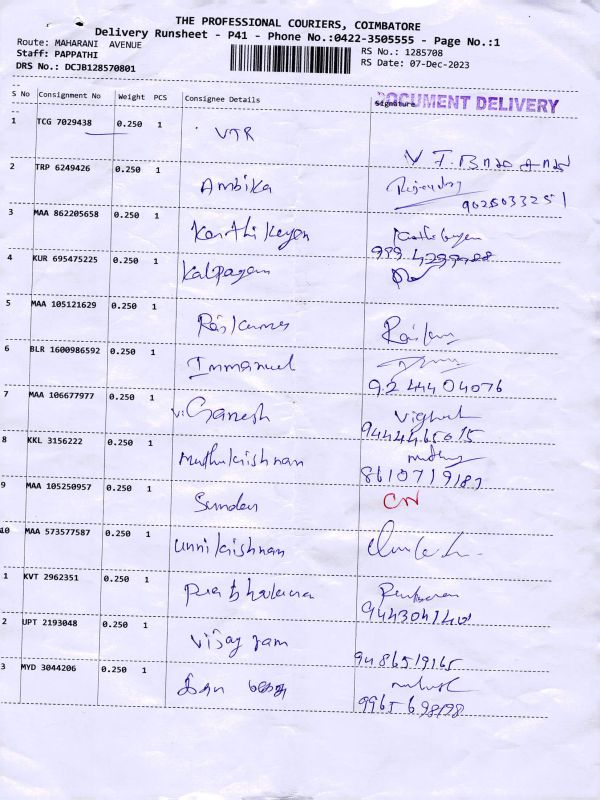 THE PROFESSIONAL COURIERS, COIMBATORE
Delivery Runsheet - P41 - Phone No.:0422-3505555 - Page No.:1
Route: MAHARANI AVENUE RS No.: 1285708
Staff: PAPPATHI RS Date: 07-Dec-2023
DRS No.: DCJB128570801
DOCUMENT DELIVERY
S No Consignment No Weight PCS Consignee Details Signature
1 TCG 7029438 0.250 1 VTR
2 TRP 6249426 0.250 1 Ambika
9025033251
3 MAA 862205658 0.250 1 Karthikeyan
4 KUR 695475225 0.250 1 Kalpagam
5 MAA 105121629 0.250 1 Rajkumar
6 BLR 1600986592 0.250 1 Immanuel
9244404076
7 MAA 106677977 0.250 1 Vi Ganesh
8 KKL 3156222 0.250 1 Muthukrishnan
9 MAA 105250957 0.250 1 Sundar CN
10 MAA 573577587 0.250 1 Unnikrishnan
1 KVT 2962351 0.250 1 Prabhakaran
2 UPT 2193048 0.250 1 Vijay ram
9486519165
3 MYD 3044206 0.250 1